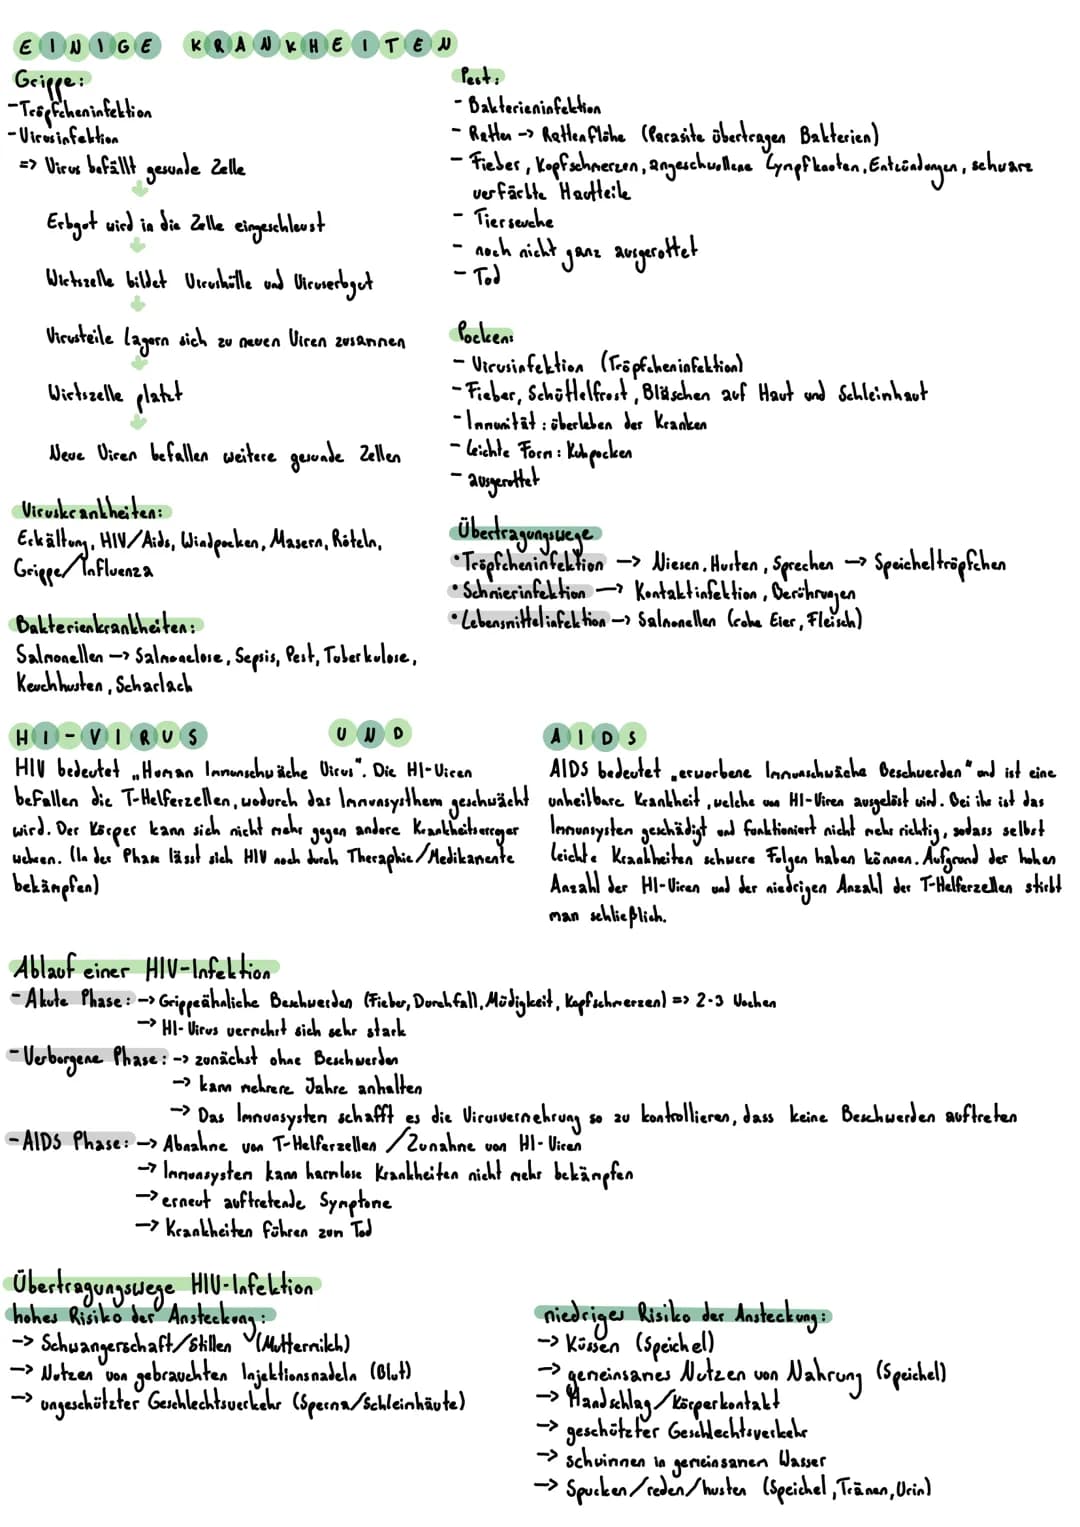 EINIGE KRANKHEITEN
Grippe:
-Tröpfcheninfektion
-Virusinfektion
=> Virus befällt gesunde Zelle
Erbgut wird in die Zelle eingeschleust
Wirtszelle bildet Virushülle und Viruserbgut
Virusteile lagern sich zu neuen Viren zusammen
Wirtszelle platzt
Neue Viren befallen weitere gesunde Zellen
Viruskrankheiten:
Erkältung, HIV/Aids, Windpocken, Masern, Röteln,
Grippe/Influenza
Bakterienkrankheiten:
Salmonellen -> Salmonelose, Sepsis, Pest, Tuberkulose,
Keuchhusten, Scharlach
Pest:
- Bakterieninfektion
- Ratten -> Rattenflöhe (Parasite übertragen Bakterien)
- Fieber, Kopfschmerzen, angeschwollene Lympfknoten, Entzündungen, schwarz
verfärbte Hautteile
- Tierseuche
- noch nicht ganz ausgerottet
- Tod
Pocken:
- Virusinfektion (Tröpfcheninfektion)
- Fieber, Schüttelfrost, Bläschen auf Haut und Schleinhaut
- Immunität: überleben der Kranken
- leichte Form: Kuhpocken
- ausgerottet
Übertragungswege
• Tröpfcheninfektion -> Niesen, Husten, Sprechen -> Speicheltröpfchen
• Schmierinfektion -> Kontaktinfektion, Berührungen
• Lebensmittelinfektion -> Salmonellen (rohe Eier, Fleisch)
HI-VIRUS UND AIDS
HIV bedeutet „Human Immunschwäche Virus". Die HI-Viren
befallen die T-Helferzellen, wodurch das Immunsysthem geschwächt
wird. Der Körper kann sich nicht mehr gegen andere Krankheitserreger
wehren. (In der Phase lässt sich HIV noch durch Theraphie/Medikamente
bekämpfen)
AIDS bedeutet „erworbene Immunschwäche Beschwerden" und ist eine
unheilbare Krankheit, welche von HI-Viren ausgelöst wird. Bei ihr ist das
Immunsystem geschädigt und funktioniert nicht mehr richtig, sodass selbst
leichte Krankheiten schwere Folgen haben können. Aufgrund der hohen
Anzahl der HI-Viren und der niedrigen Anzahl der T-Helferzellen stirbt
man schließlich.
Ablauf einer HIV-Infektion
- Akute Phase: -> Grippeähnliche Beschwerden (Fieber, Durchfall, Müdigkeit, Kopfschmerzen) => 2-3 Wochen
-> HI-Virus vermehrt sich sehr stark
- Verborgene Phase: -> zunächst ohne Beschwerden
-> kann mehrere Jahre anhalten
-> Das Immunsystem schafft es die Virusvermehrung so zu kontrollieren, dass keine Beschwerden auftreten
- AIDS Phase: -> Abnahme von T-Helferzellen / Zunahme von HI-Viren
-> Immunsystem kann harmlose Krankheiten nicht mehr bekämpfen
-> erneut auftretende Symptome
-> Krankheiten führen zum Tod
Übertragungswege HIV-Infektion
hohes Risiko der Ansteckung:
-> Schwangerschaft/Stillen (Muttermilch)
-> Nutzen von gebrauchten Injektionsnadeln (Blut)
-> ungeschützter Geschlechtsverkehr (Sperma/Schleimhäute)
niedriges Risiko der Ansteckung:
-> Küssen (Speichel)
-> gemeinsames Nutzen von Nahrung (Speichel)
-> Handschlag/Körperkontakt
-> geschützter Geschlechtsverkehr
-> schwimmen in gemeinsamen Wasser
-> Spucken/reden/husten (Speichel, Tränen, Urin)